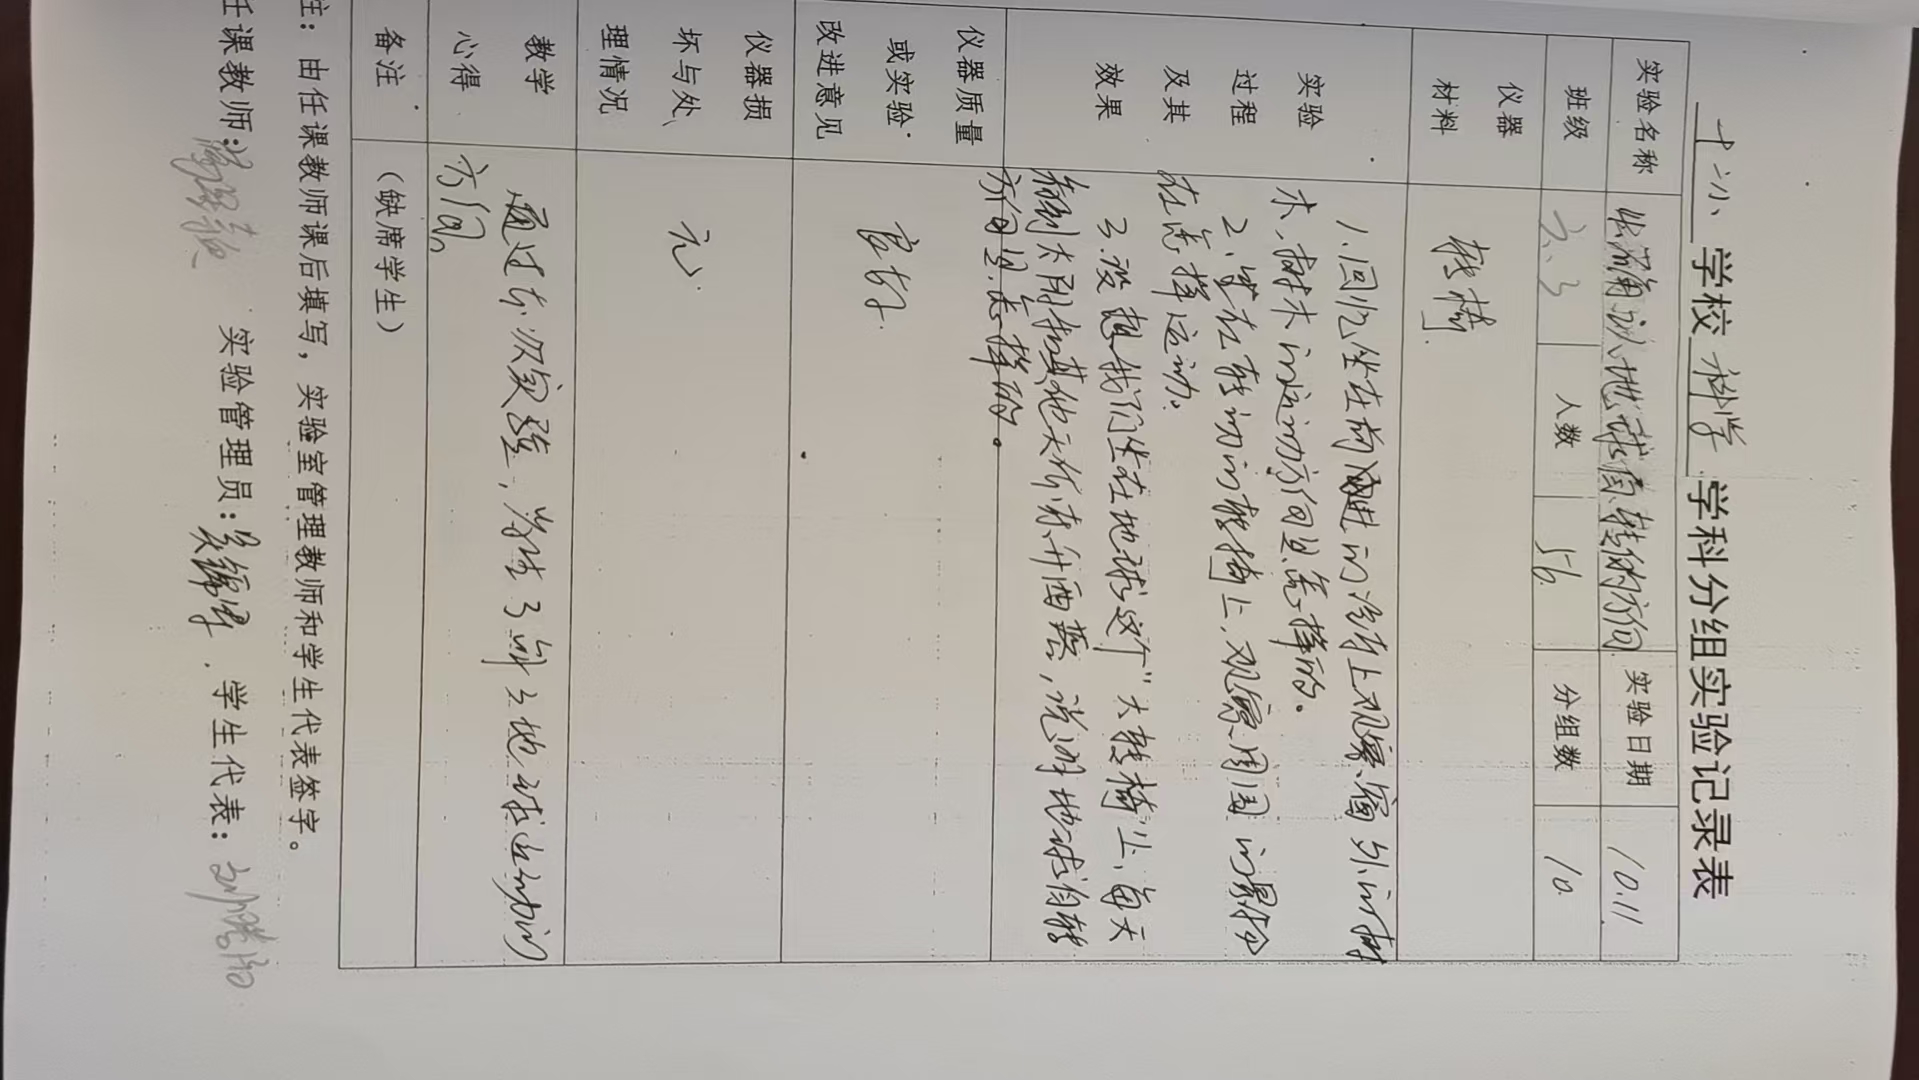 十六小学校科学学科分组实验记录表
实验名称 正确认地球自转的方向 实验日期 10.11
班级 六.3 人数 56. 分组数 10.
仪器材料 转椅.
实验过程及其效果
1.回忆坐在前进的汽车上观察窗外的树
木,树木的运动方向是怎样的.
2.坐在转动的转椅上,观察周围的景物
在怎样运动。
3.设想我们坐在地球这个"大转椅"上,每天
看到太阳和其他天体东升西落,说明地球自转
方向是怎样的。
仪器质量或实验改进意见 良好.
仪器损坏与处理情况 无.
教学心得 通过本次实验,学生了解了地球运动的
方向。
备注 (缺席学生)
注:由任课教师课后填写,实验室管理教师和学生代表签字。
任课教师: 实验管理员: 学生代表: